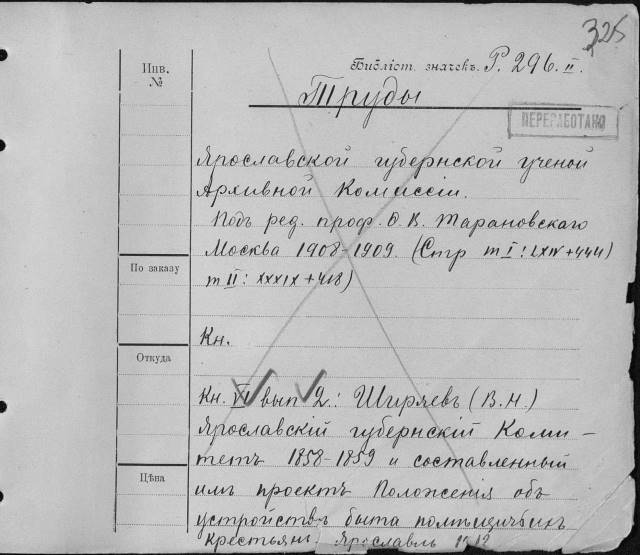 325
Инв. №
Библіот. значекъ. Р. 296. II.
Труды
ПЕРЕРАБОТАНО
Ярославской губернской ученой
Архивной Комиссіи.
Подъ ред. проф. Ѳ. В. Тарановскаго
Москва 1908-1909. (Стр т I: LXIV+444)
По заказу
т II: XXXIX+418)
Кн.
Откуда
Кн. VI вып 2: Ширяевъ (В.Н.)
Ярославскій губернскій Коми-
тетъ 1858-1859 и составленный
Цѣна
имъ проектъ Положенія объ
устройствѣ быта помѣщичьихъ
крестьянъ. Ярославль 1912